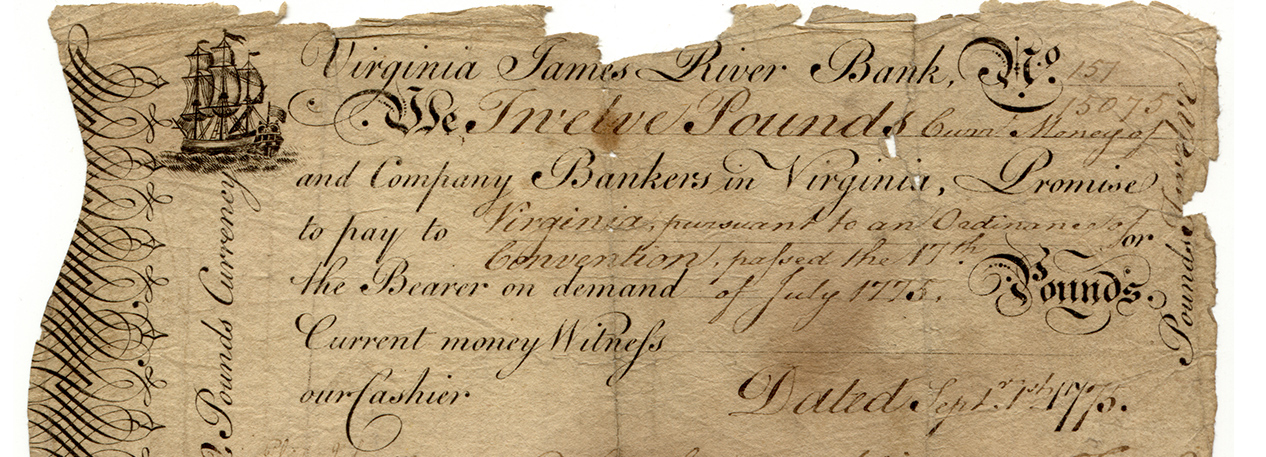 Virginia James River Bank, No. 157
15075
We, Twelve Pounds Curr.t Money of
and Company Bankers in Virginia, Promise
to pay to Virginia, pursuant to an Ordinance of or
Convention, passed the 17th
the Bearer on demand of July 1775. Pounds.
Current money Witness
our Cashier
Dated Sept.r 1st 1775.
Pounds Currency
Pounds Twelve